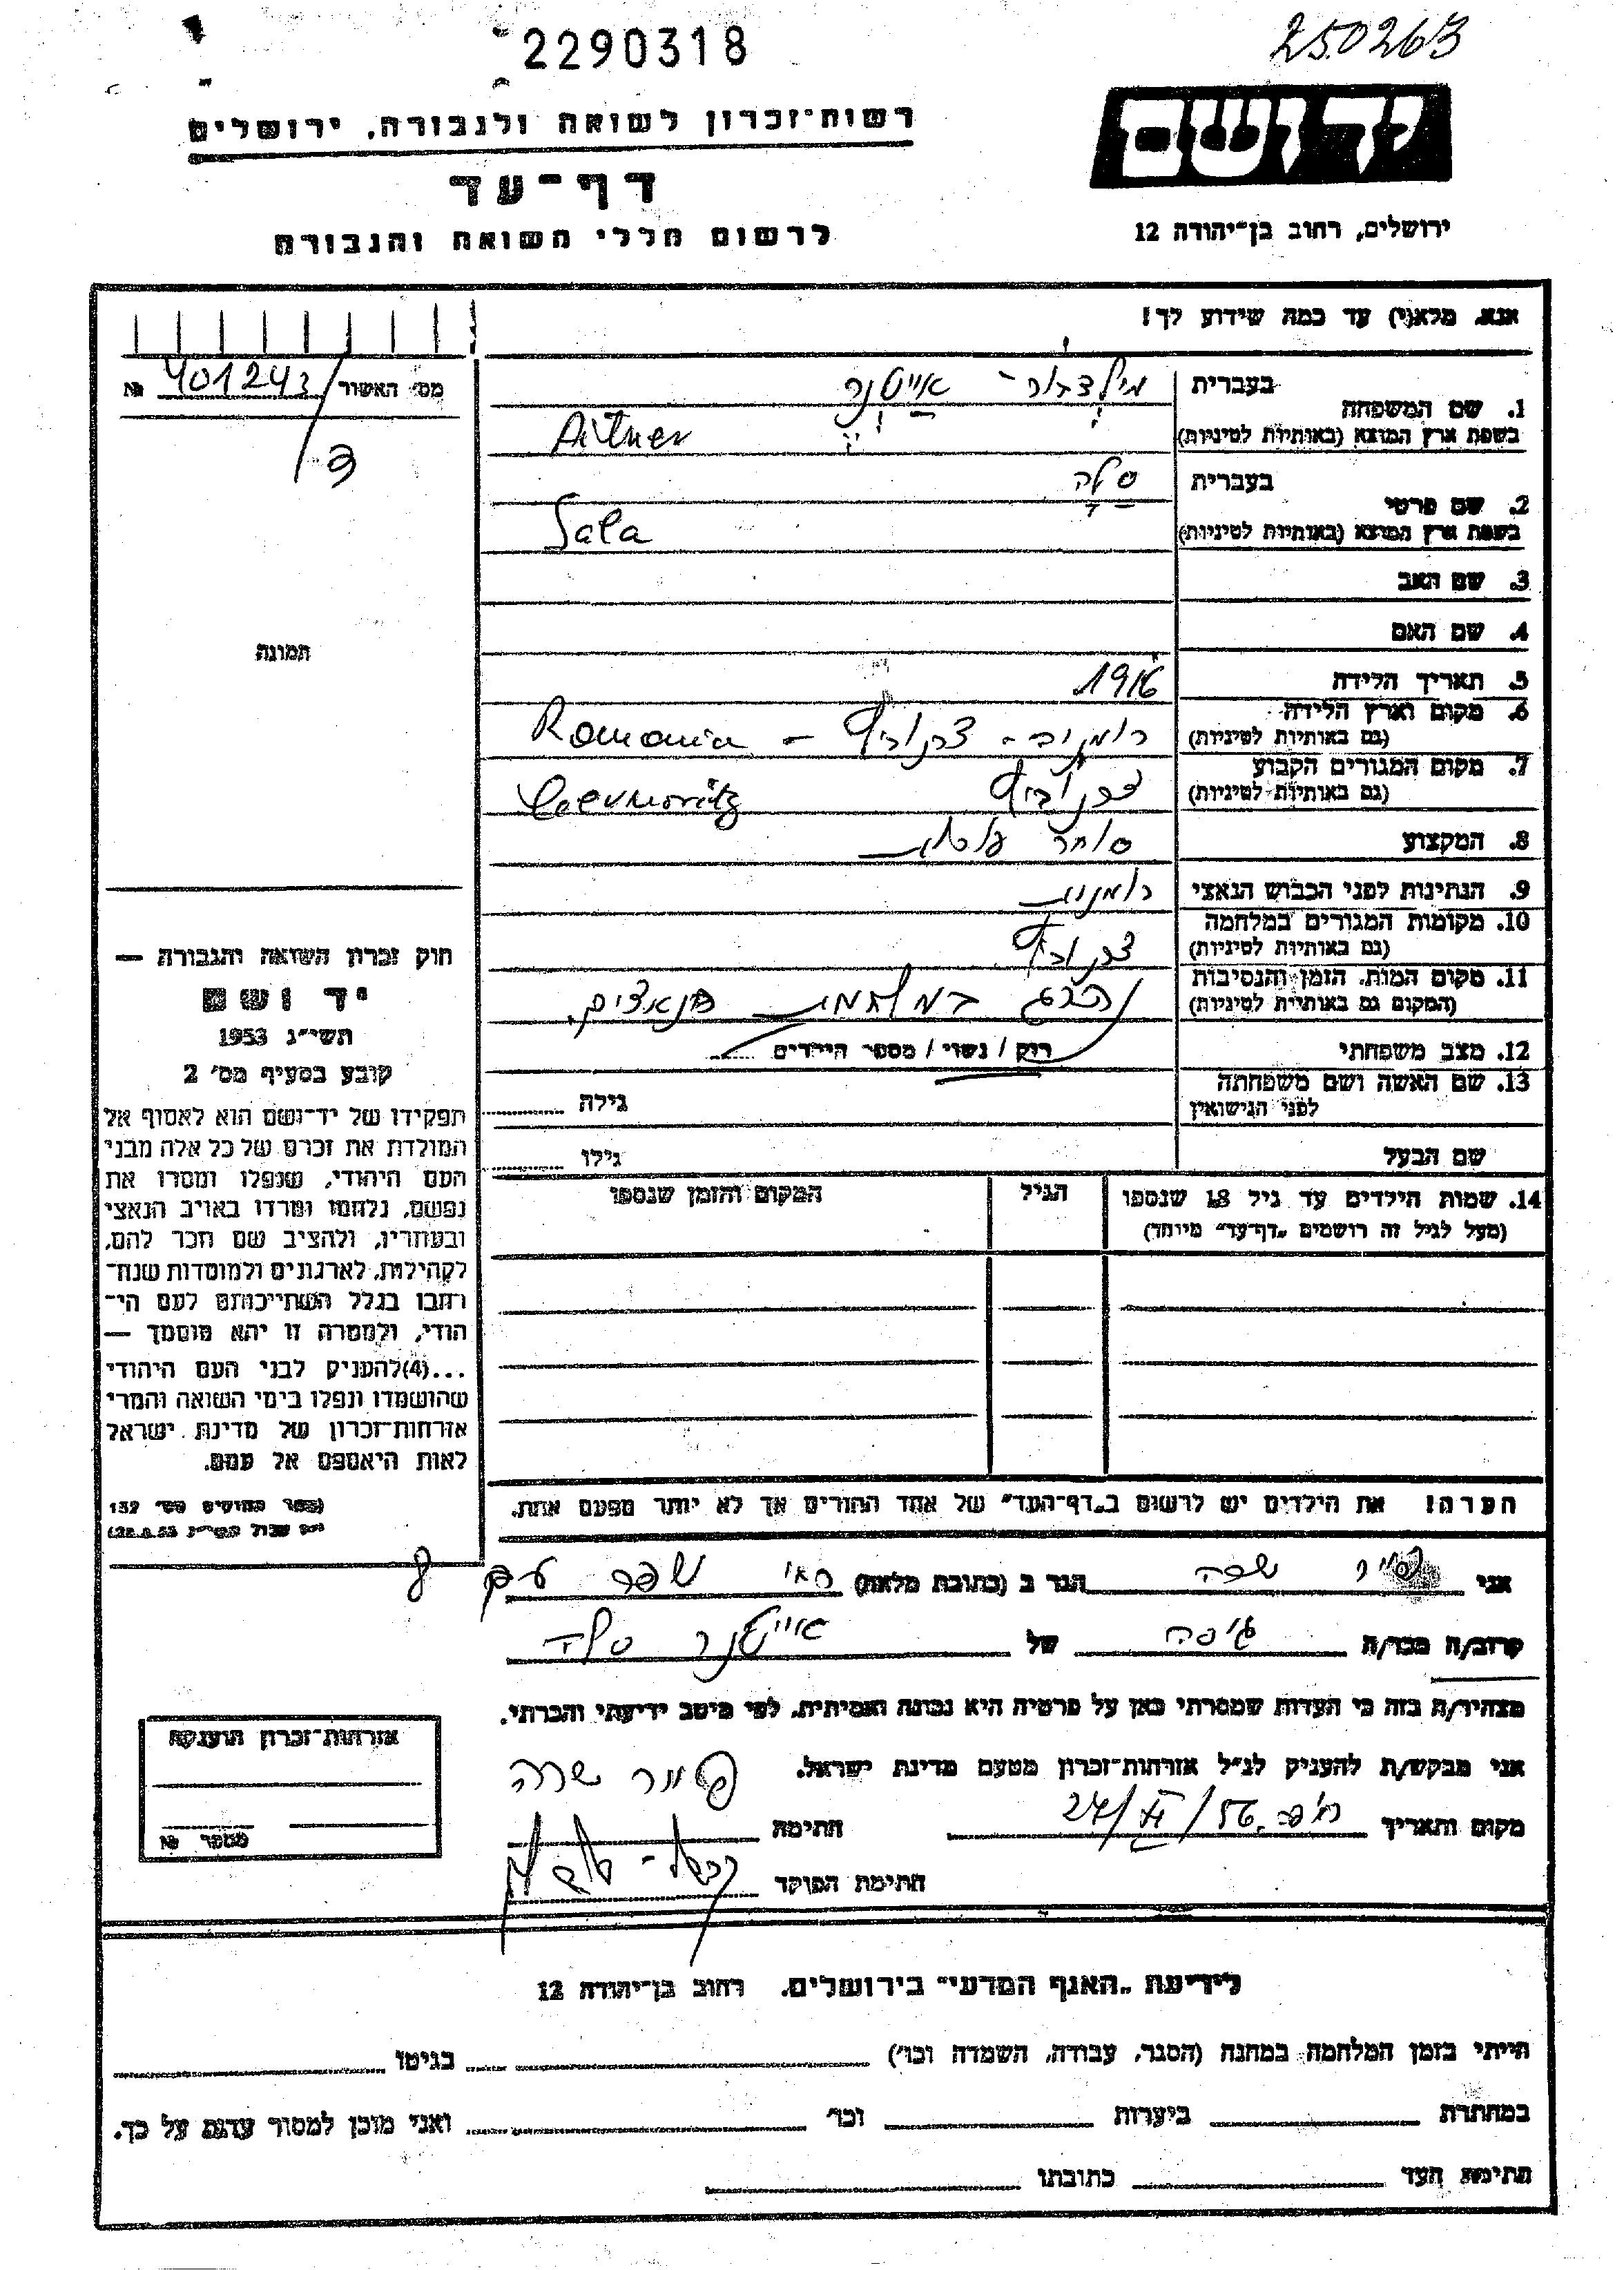 2290318
250263
יד ושם
רשות־זכרון לשואה ולגבורה, ירושלים
דף־עד
לרשום חללי השואה והגבורה
ירושלים, רחוב בן־יהודה 12
אנא, מלא(י) עד כמה שידוע לך!
מס׳ האשור 401243 №
ד
1. שם המשפחה
בעברית אייטנר
בשפת ארץ המוצא (באותיות לטיניות) Aitner
2. שם פרטי
בעברית סלה
בשפת ארץ המוצא (באותיות לטיניות) Sala
3. שם האב
4. שם האם
5. תאריך הלידה 1916
6. מקום וארץ הלידה
(גם באותיות לטיניות) רומניה - צרנוביץ - Romania
7. מקום המגורים הקבוע
(גם באותיות לטיניות) צרנוביץ
8. המקצוע סוחר
9. הנתינות לפני הכבוש הנאצי רומנית
10. מקומות המגורים במלחמה
(גם באותיות לטיניות) צרנוביץ
11. מקום המות, הזמן והנסיבות
(המקום גם באותיות לטיניות) נהרג במלחמת הנאצים.
12. מצב משפחתי רוק / נשוי / מספר הילדים
13. שם האשה ושם משפחתה
לפני הנישואין גילה
שם הבעל גילו
14. שמות הילדים עד גיל 18 שנספו
(מעל לגיל זה רושמים „דף־עד" מיוחד)
הגיל
המקום והזמן שנספו
תמונה
חוק זכרון השואה והגבורה —
יד ושם
תשי״ג 1953
קובע בסעיף מס׳ 2
תפקידו של יד־ושם הוא לאסוף אל
המולדת את זכרם של כל אלה מבני
העם היהודי, שנפלו ומסרו את
נפשם, נלחמו ומרדו באויב הנאצי
ובעוזריו, ולהציב שם וזכר להם,
לקהילות, לארגונים ולמוסדות שנח־
רבו בגלל השתייכותם לעם הי־
הודי, ולמטרה זו יהא מוסמך —
...(4)להעניק לבני העם היהודי
שהושמדו ונפלו בימי השואה והמרי
אזרחות־זכרון של מדינת ישראל
לאות היאספם אל עמם.
(ספר החוקים מס׳ 132
הערה! את הילדים יש לרשום ב„דף־העד" של אחד ההורים אך לא יותר מפעם אחת.
אני שרה הגר ב (כתובת מלאה) 8
קרוב/ה מכר/ה גיסה של אייטנר סלה
מצהיר/ה בזה כי העדות שמסרתי כאן על פרטיה היא נכונה ואמיתית, לפי מיטב ידיעתי והכרתי.
אני מבקש/ת להעניק לנ״ל אזרחות־זכרון מטעם מדינת ישראל.
שרה
מקום ותאריך 27/ 56. חתימה
חתימת הפוקד
אזרחות־זכרון הוענקה
מספר №
לידיעת „האגף המדעי" בירושלים, רחוב בן־יהודה 12
הייתי בזמן המלחמה במחנה (הסגר, עבודה, השמדה וכו׳) בגיטו
במחתרת ביערות וכו׳ ואני מוכן למסור עדות על כך.
חתימת העד כתובתו